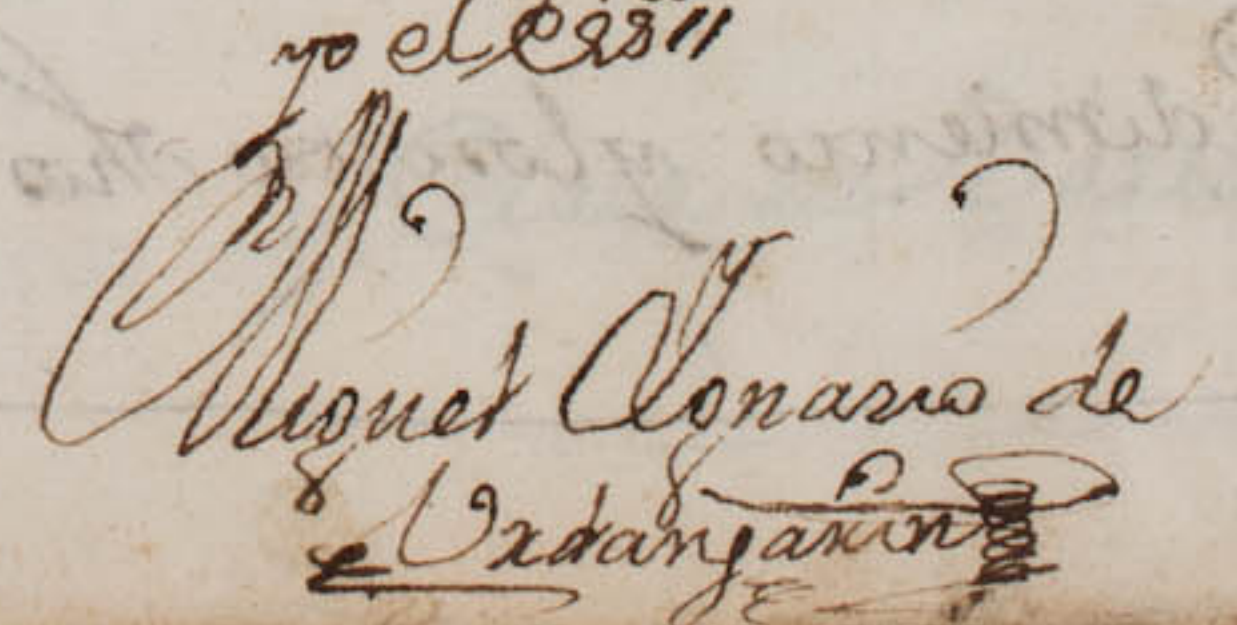 yo el essno
Miguel Ygnazio de
Urdangarin